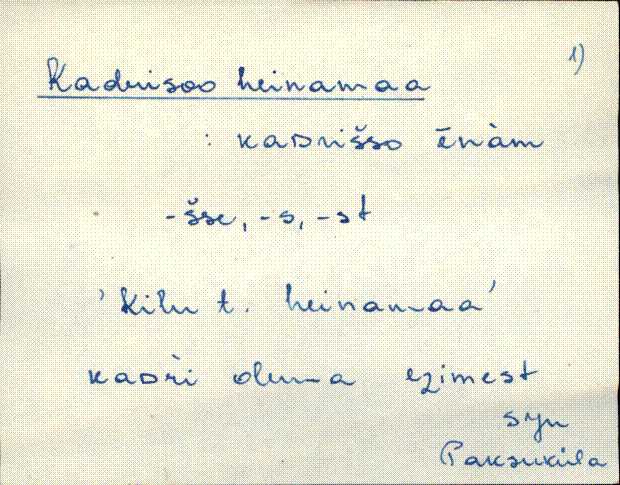 1)
Kadrisoo heinamaa
: kaᴅrišso ēnàm
-šse, -s, -st
'Kilu t. heinamaa'
kaᴅri olema ezimest
Paksuküla